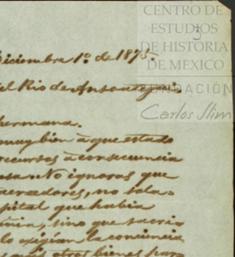 CENTRO DE
ESTUDIOS
DE HISTORIA
DE MEXICO
FUNDACIÓN
Carlos Slim
Diciembre 1º de 1875.
del Rio de
hermana.
muy bien à que estado
recursos à consecuencia
ignoras que
acreedores, no solo
pital que habia
sino que sacri
lo exigian la conciencia
otros bienes para